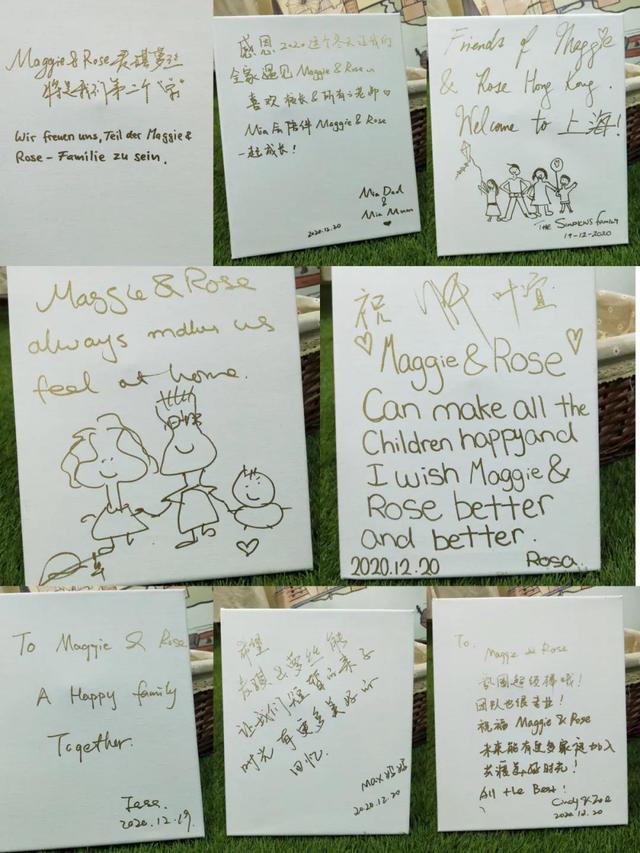 Maggie & Rose 麦琪萝丝
将是我们第二个“家”
Wir freuen uns, Teil der Maggie &
Rose - Familie zu sein.
感恩2020这个冬天让我们
全家遇见 Maggie & Rose
喜欢校长&所有老师♡
Mia会陪伴 Maggie & Rose
一起成长!
Mia Dad
&
Mia Mum
♥
2020.12.20
Friends of Maggie
& Rose Hong Kong.
Welcome to 上海!
THE SIMPKINS family
19-12-2020
Maggie & Rose
always makes us
feel at home.
祝
叶宣
♡ Maggie & Rose ♡
Can make all the
Children happy and
I wish Maggie &
Rose better
and better.
2020.12.20 Rosa
To Maggie & Rose
A Happy family
Together.
2020.12.19.
希望
麦琪&萝丝能
让我们短暂的亲子
时光有更多美好的
回忆.
Max妈妈
2020.12.20
To:
Maggie & Rose
校园超级棒哦!
团队也很专业!
祝福 Maggie & Rose
未来能有更多家庭加入
共度美好时光!
All the Best!
Cindy & Zoe
2020.12.20